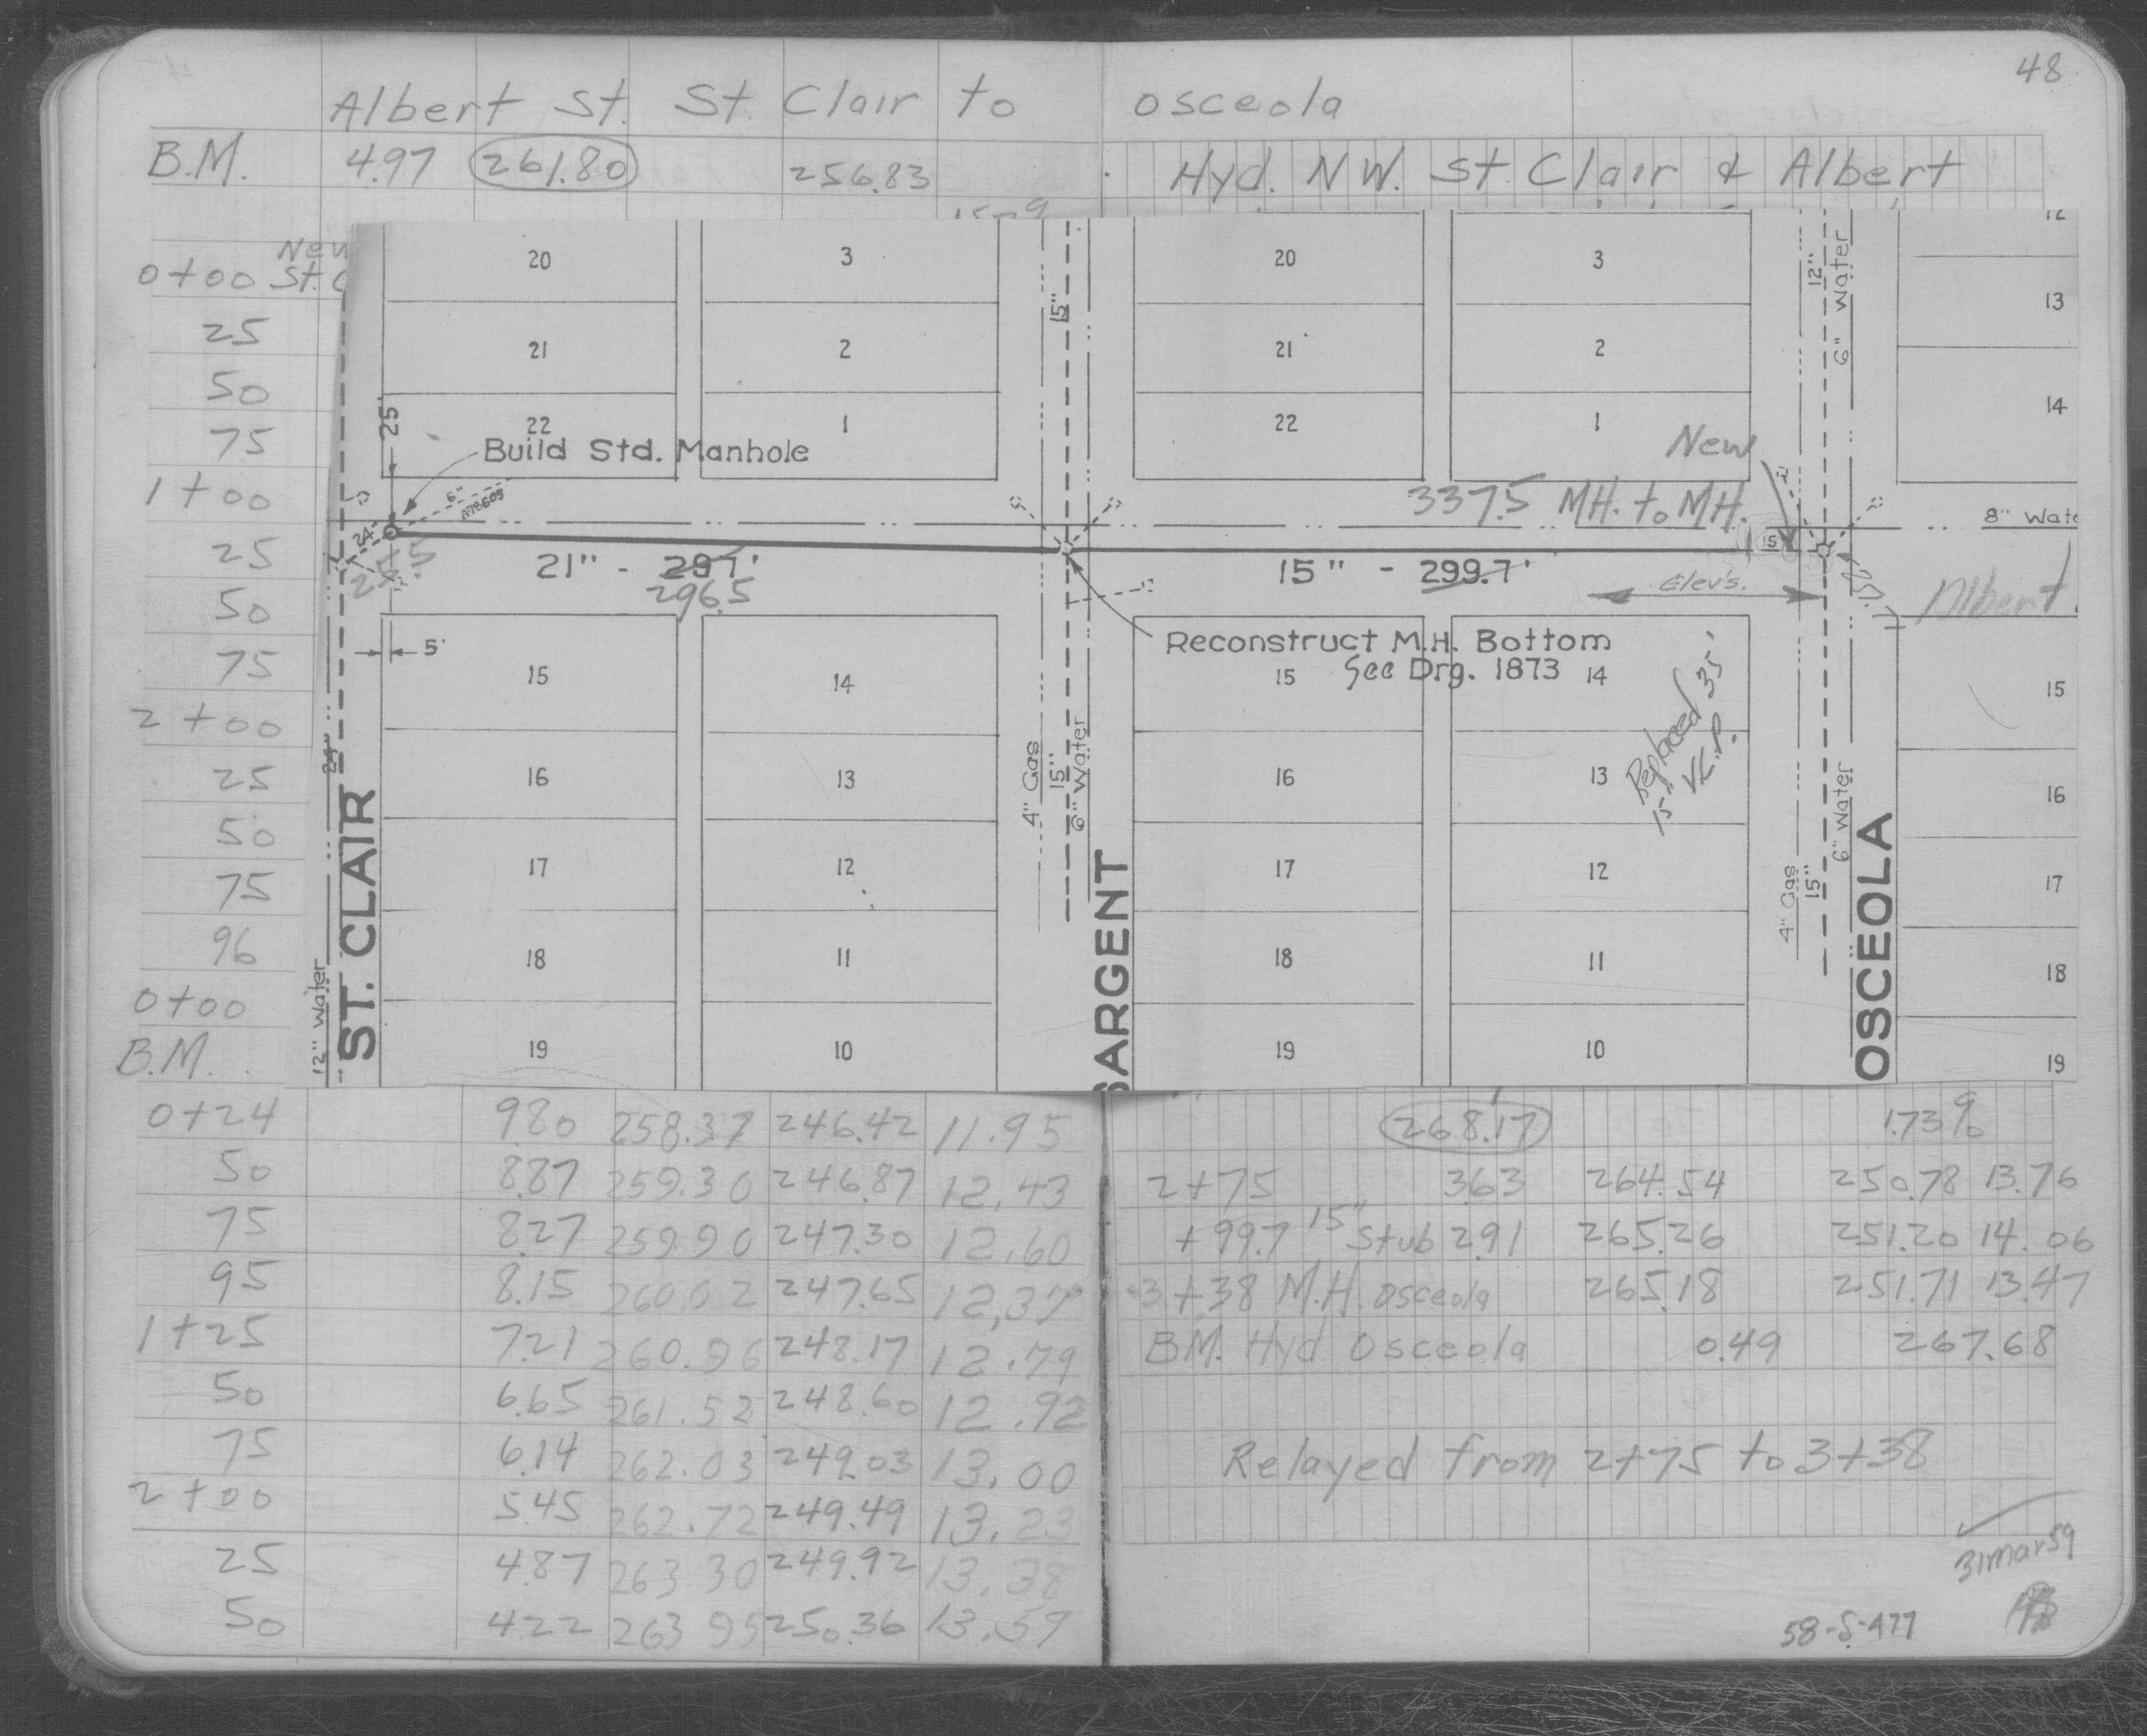 48
Albert St. St Clair to Osceola
B.M. 4.97 261.80 256.83 Hyd. NW. St Clair & Albert
New
0+00 St. C
25
50
75
1+00
25
50
75
2+00
25
50
75
96
0+00
B.M.
20 3 20 3 12
21 2 21 2 13
22 1 22 1 14
15" 12" 6" Water
25'
Build Std. Manhole
New
6"
24"
337.5 MH. to MH.
8" Wate
21" - 297'
296.5
15" - 299.7'
15
Elev's.
Albert
5'
Reconstruct M.H. Bottom
See Drg. 1873
Replaced 35'
15" V.C.P.
15 14 15 14 15
16 13 16 13 16
17 12 17 12 17
18 11 18 11 18
19 10 19 10 19
12" Water
24"
ST. CLAIR
4" Gas
15"
6" Water
SARGENT
4" Gas
15"
6" Water
OSCEOLA
0+24 9.80 258.37 246.42 11.95
50 8.87 259.30 246.87 12.43
75 8.27 259.90 247.30 12.60
95 8.15 260.02 247.65 12.37
1+25 7.21 260.96 248.17 12.79
50 6.65 261.52 248.60 12.92
75 6.14 262.03 249.03 13.00
2+00 5.45 262.72 249.49 13.23
25 4.87 263.30 249.92 13.38
50 4.22 263.95 250.36 13.59
268.17 1.73%
2+75 3.63 264.54 250.78 13.76
+99.7 15" Stub 2.91 265.26 251.20 14.06
3+38 M.H. Osceola 265.18 251.71 13.47
BM. Hyd Osceola 0.49 267.68
Relayed from 2+75 to 3+38
31 Mar 59
58-S-477